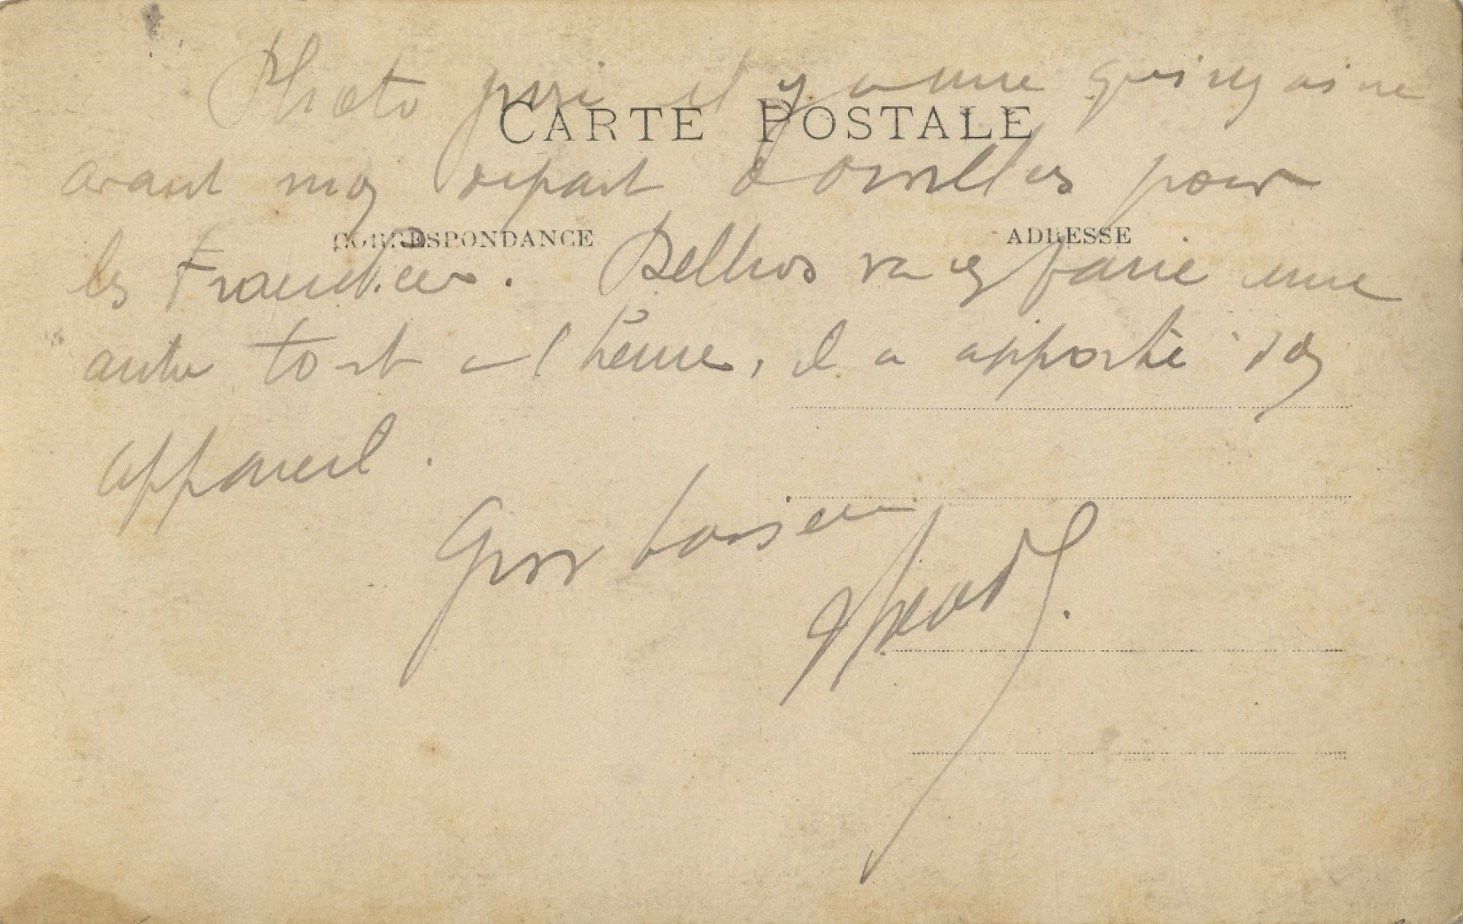 Photo pris il y a une quinzaine
CARTE POSTALE
avant mon départ d pour
CORRESPONDANCE
ADRESSE
les Tranchées. va en faire une
autre tout à l'heure, il a apporté son
appareil.
Gros baisers